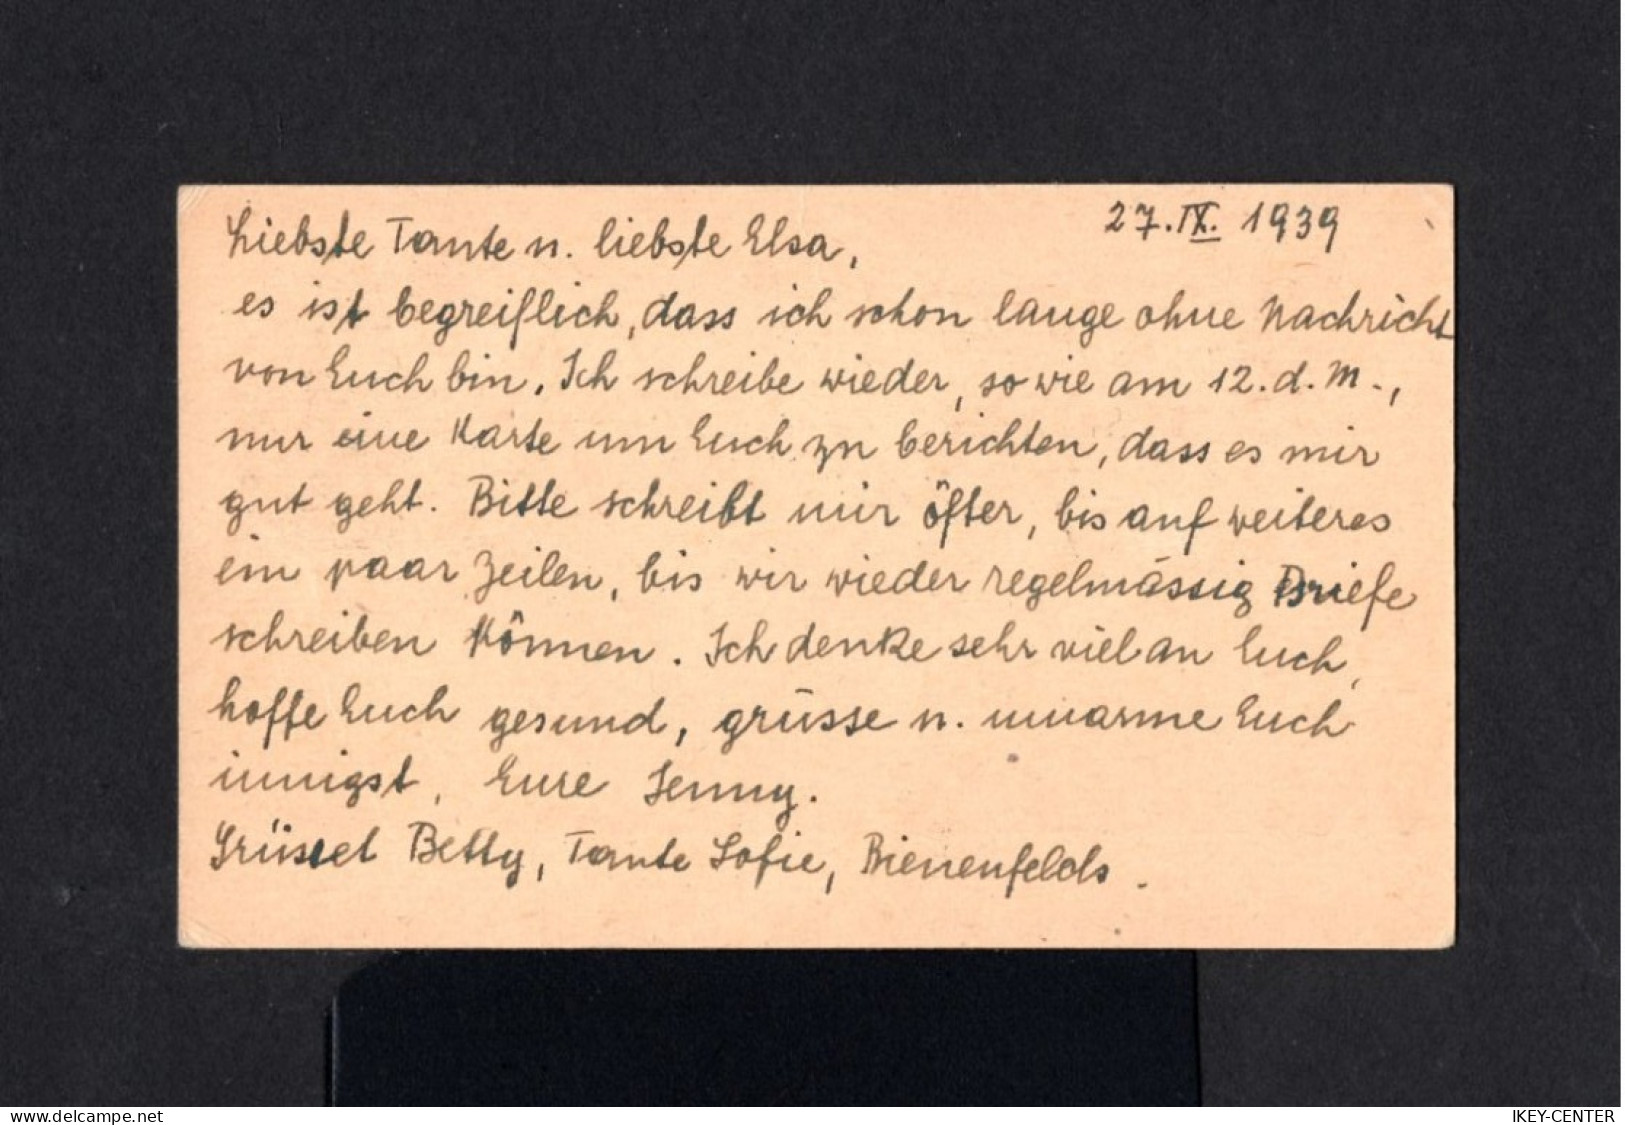 27. IX. 1939
Liebste Tante u. liebste Elsa,
es ist begreiflich, dass ich schon lange ohne Nachricht
von Euch bin. Ich schreibe wieder, so wie am 12. d. M.,
nur eine Karte um Euch zu berichten, dass es mir
gut geht. Bitte schreibt mir öfter, bis auf weiteres
ein paar Zeilen, bis wir wieder regelmässig Briefe
schreiben können. Ich denke sehr viel an Euch,
hoffe Euch gesund, grüsse u. umarme Euch
innigst, Eure Jenny.
Grüsset Betty, Tante Sofie, Bienenfelds.
www.delcampe.net
IKEY-CENTER